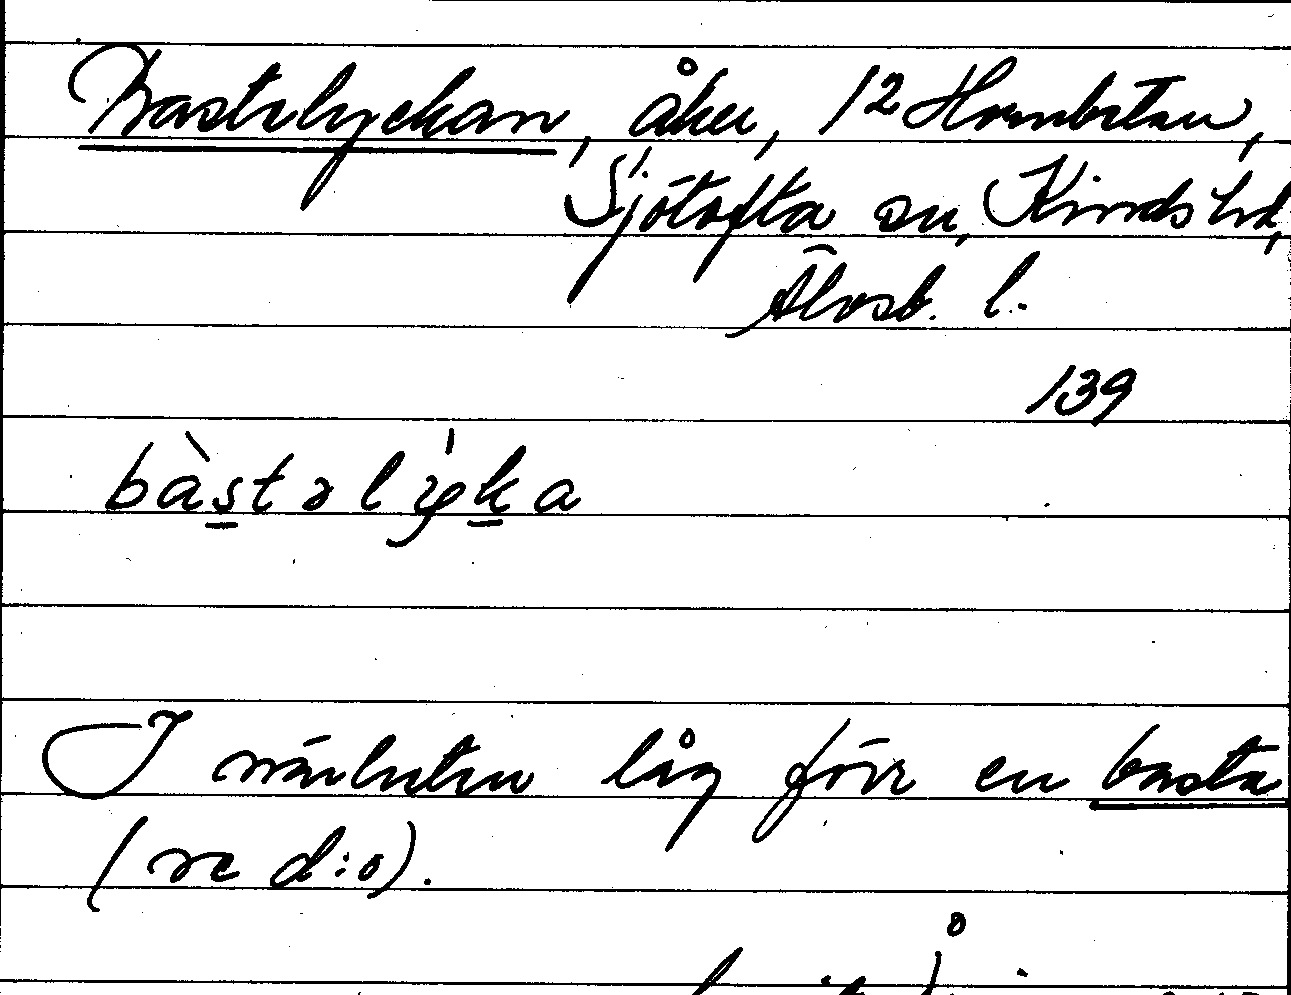 Bastelyckan, åker, 12 Hornbetan,
Sjötofta sn, Kinds hd,
Älvsb. l.
139
bàstəlyka
I närheten låg förr en basta
(se d:o).